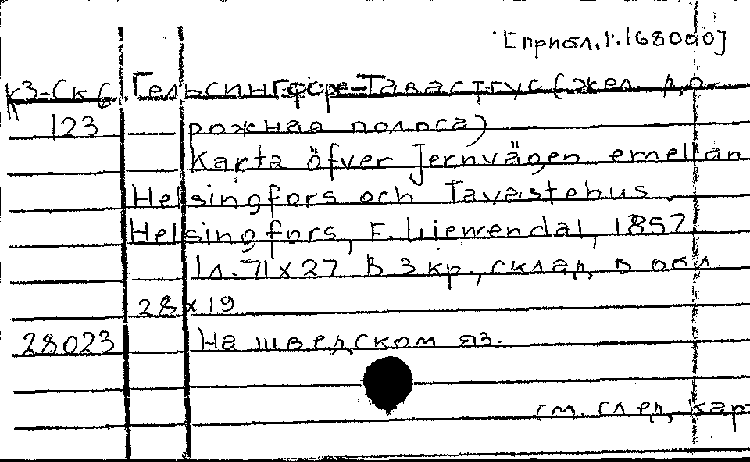 [прибл. 1:168000]
К3-Ск 6 Гельсингфорс-Тавастгус (жел. до-
123 рожная полоса)
Karta öfver Jernvägen emellan
Helsingfors och Tavastehus.
Helsingfors, F. Liewendal, 1857
1 л. 71 x 27 В 3 кр., склад. в обл.
28 x 19
28023 На шведском яз.
см. след. кар